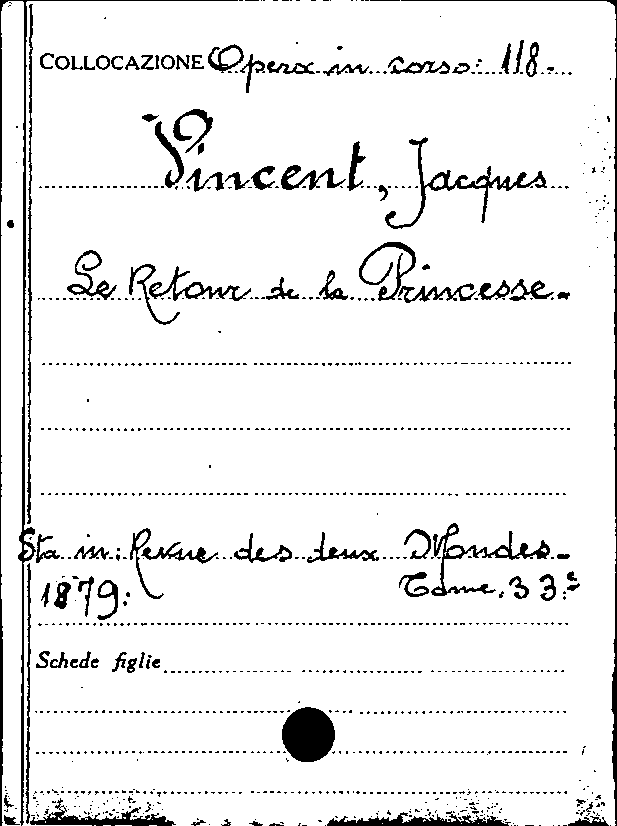 COLLOCAZIONE Opera in corso: 118.
Vincent, Jacques
Le Retour de la Princesse.
Sta in: Revue des deux Mondes.
1879: Tome. 33.e
Schede figlie